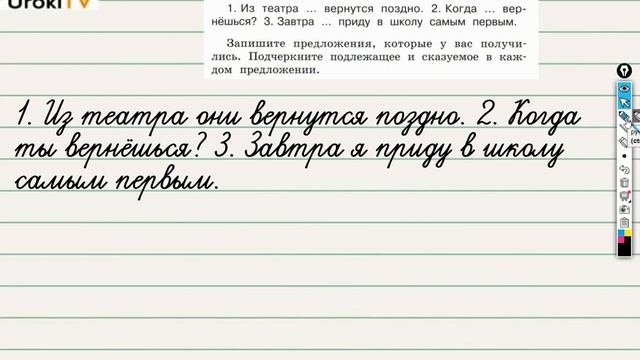 UrokiTV
1. Из театра ... вернутся поздно. 2. Когда ... вер-
нёшься? 3. Завтра ... приду в школу самым первым.
Запишите предложения, которые у вас получи-
лись. Подчеркните подлежащее и сказуемое в каж-
дом предложении.
1. Из театра они вернутся поздно. 2. Когда
ты вернёшься? 3. Завтра я приду в школу
самым первым.